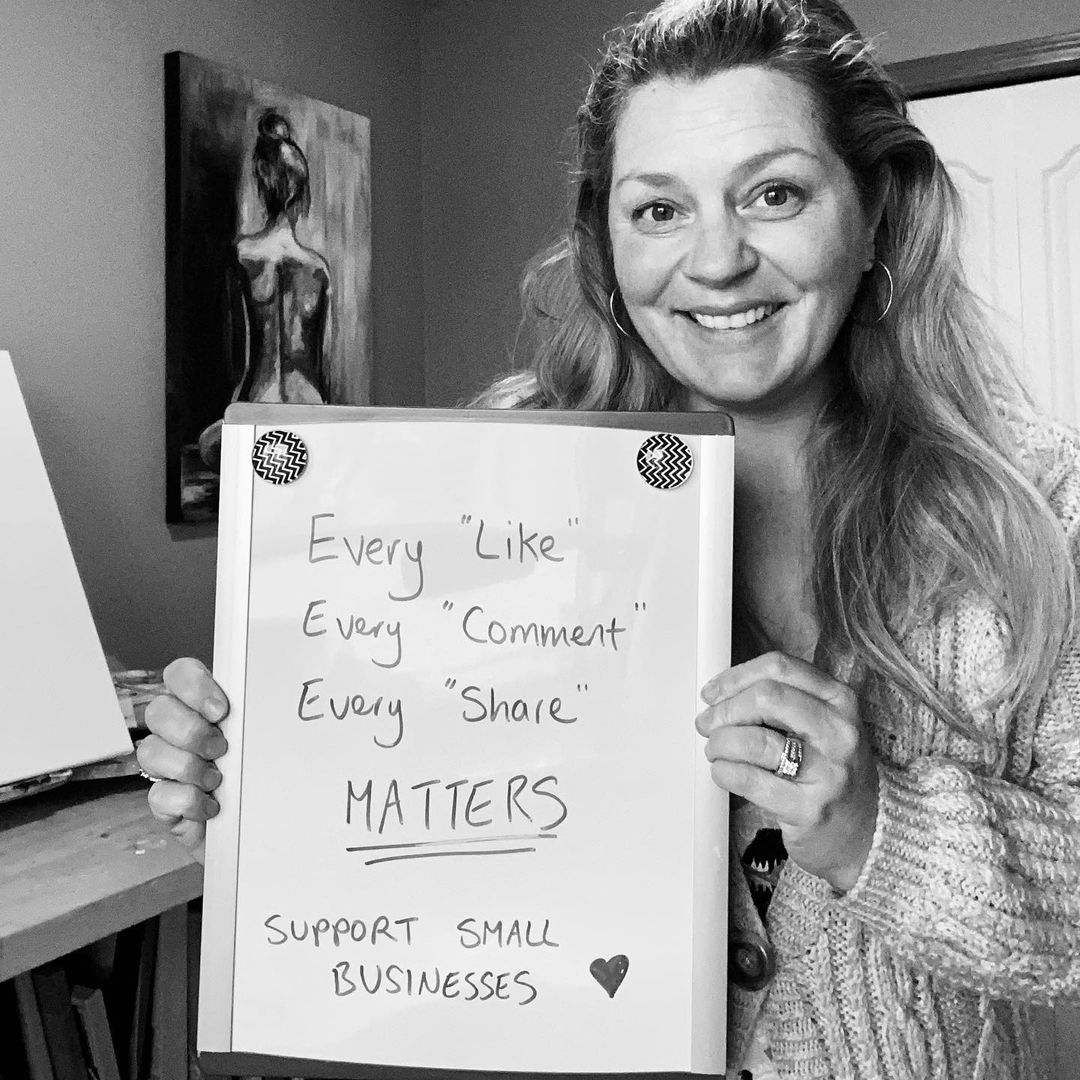 Every "Like"
Every "Comment"
Every "Share"
MATTERS
SUPPORT SMALL
BUSINESSES